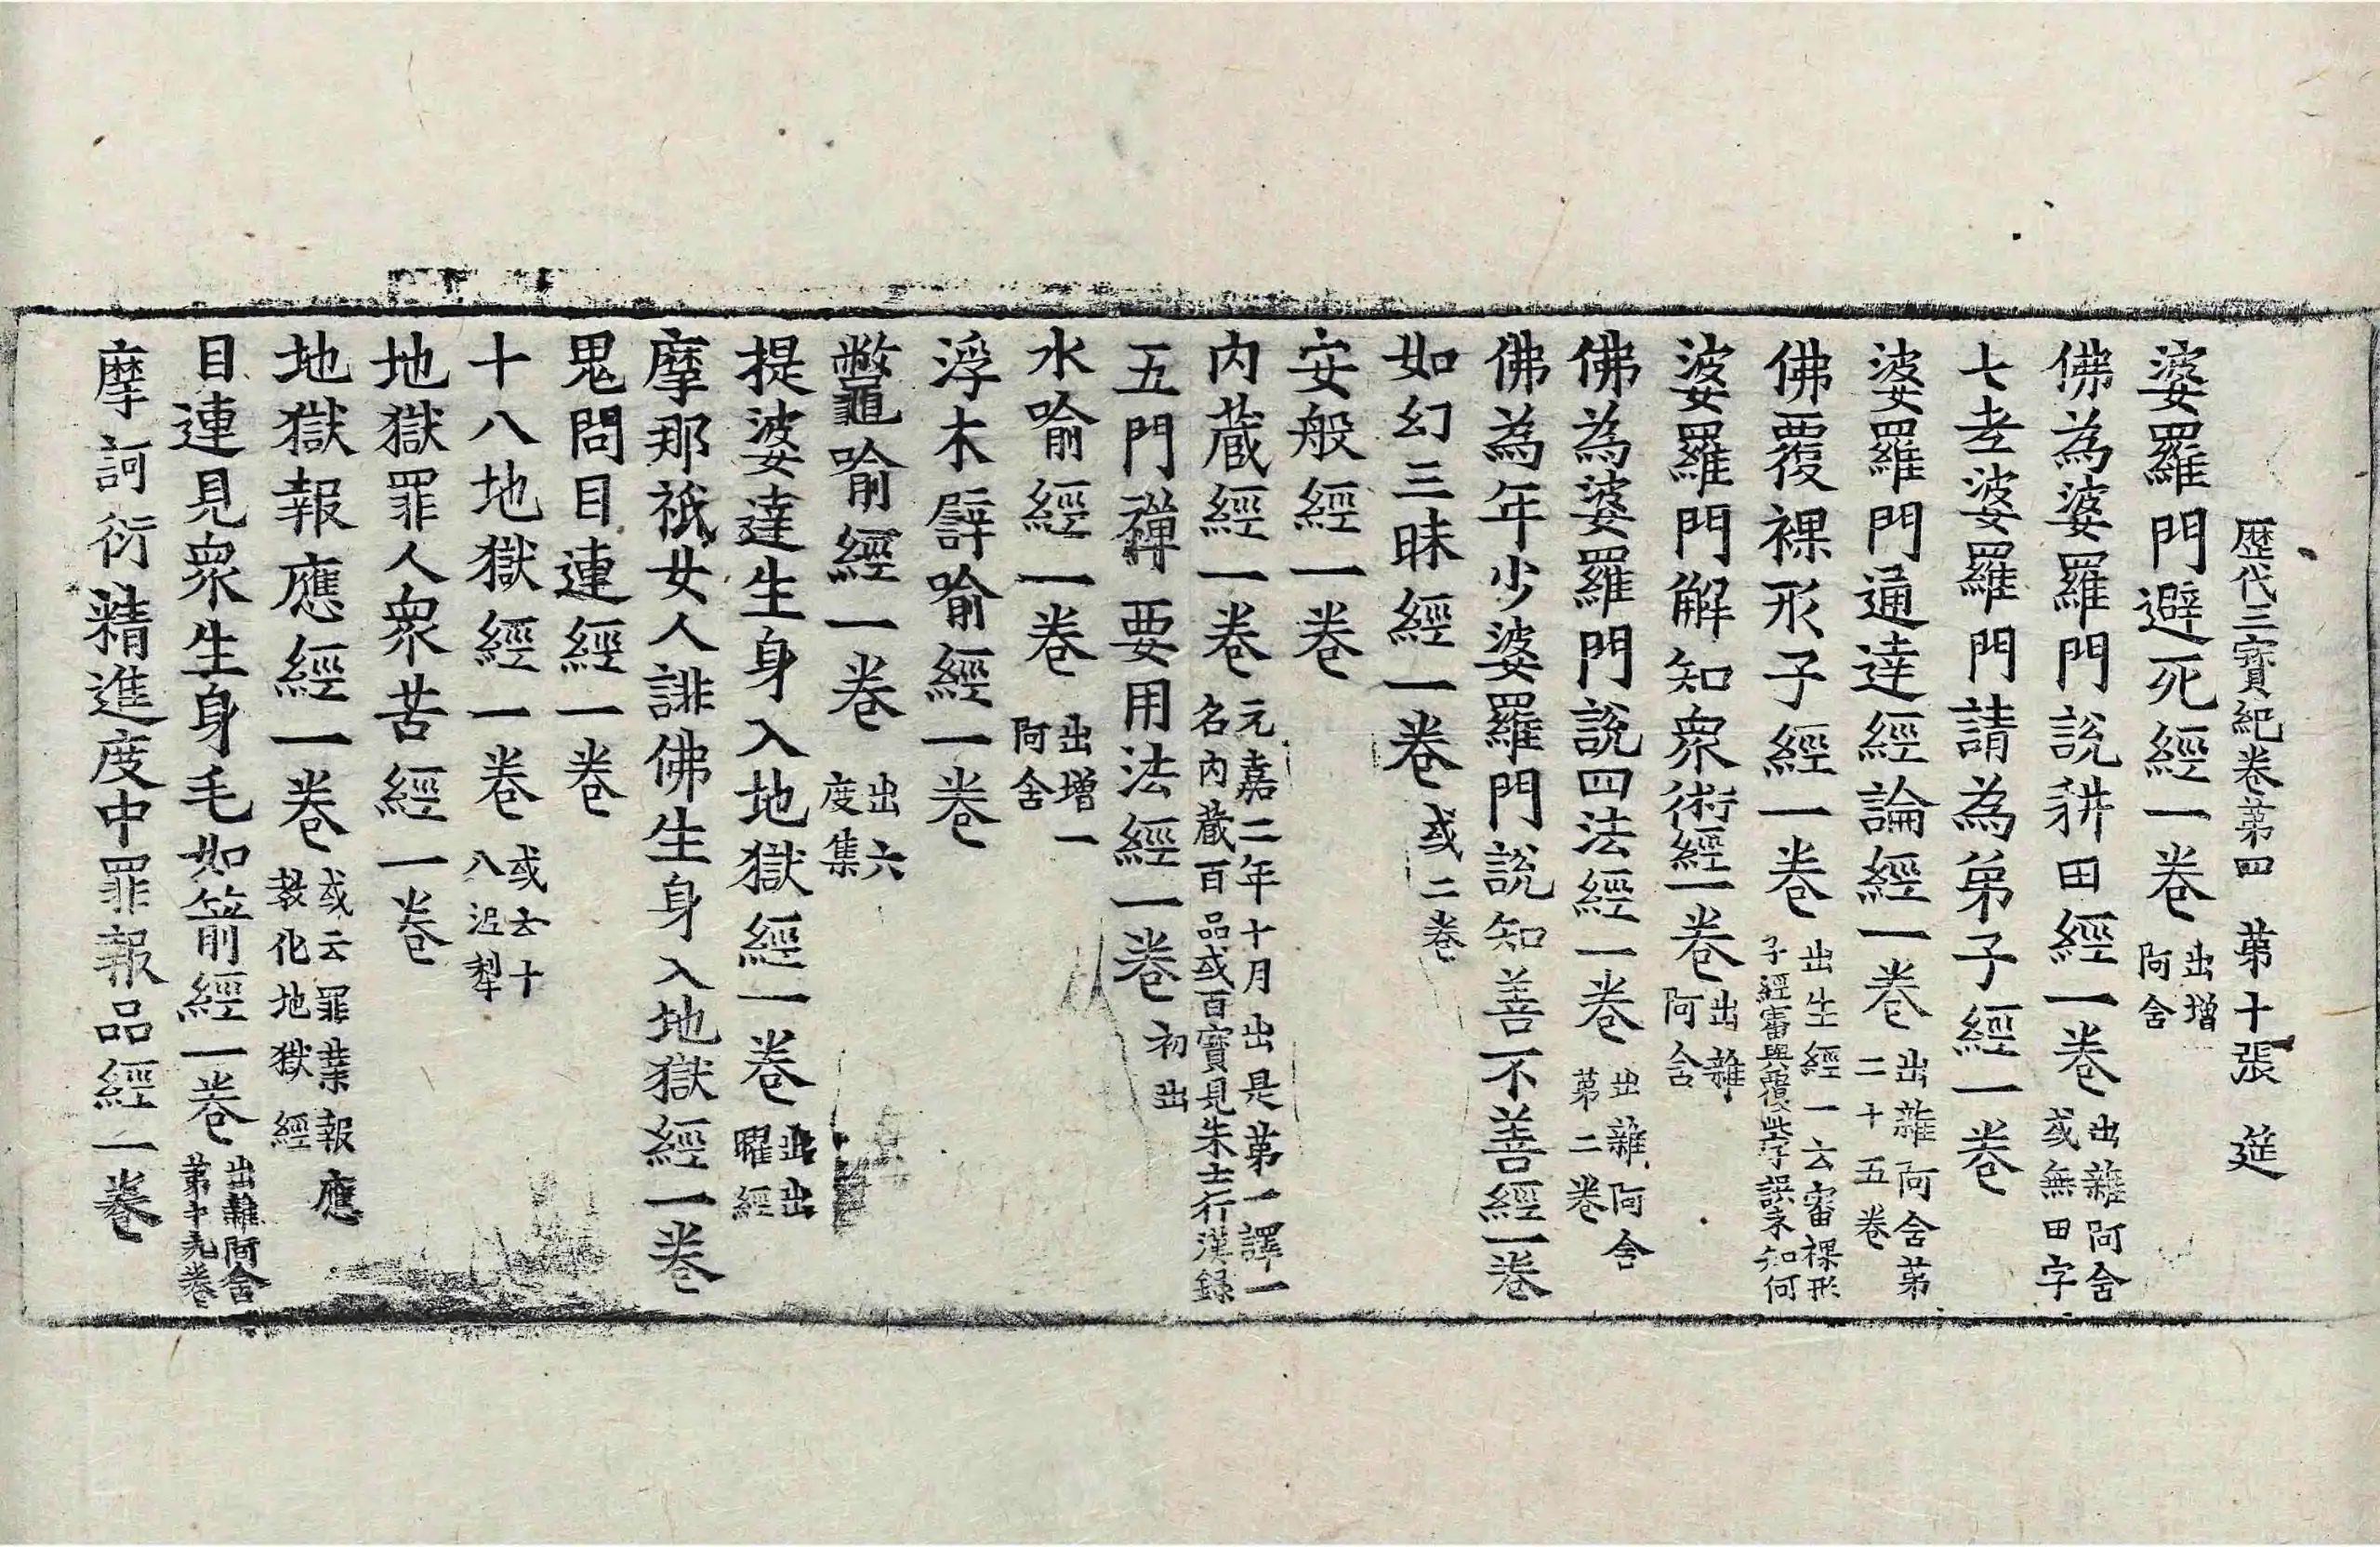 歴代三寳紀卷第四 第十張 莚
婆羅門避死經一卷 出增阿含
佛為婆羅門說耕田經一卷 出雜阿含或無田字
七老婆羅門請為弟子經一卷
婆羅門通達經論經一卷 出雜阿含第二十五卷
佛覆裸形子經一卷 出生經一云審裸形子經審與覆此字誤未知何
婆羅門解知衆術經一卷 出雜阿含
佛為婆羅門說四法經一卷 出雜阿含第二卷
佛為年少婆羅門說知善不善經一卷
如幻三昧經一卷 或二卷
安般經一卷
内蔵經一卷 元嘉二年十月出是第一譯一名内蔵百品或百寳見朱士行漢録
五門禪要用法經一卷 初出
水喻經一卷 出增一阿含
浮木譬喻經一卷
鼈喻經一卷 出六度集
提婆達生身入地獄經一卷 出出曜經
摩那祇女人誹佛生身入地獄經一卷
鬼問目連經一卷
十八地獄經一卷 或云十八泥犁
地獄罪人衆苦經一卷
地獄報應經一卷 或云罪業報應教化地獄經
目連見衆生身毛如箭經一卷 出雜阿含第十九卷
摩訶衍精進度中罪報品經一卷